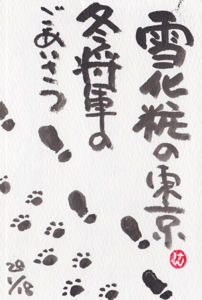 雪化粧の東京
冬将軍の
ごあいさつ
28
1/18